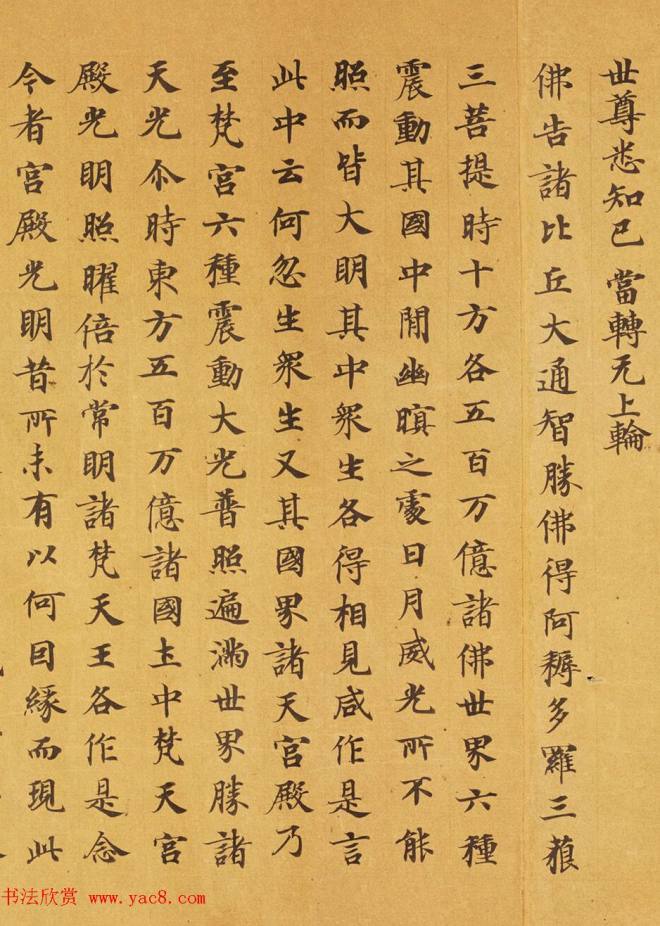 世尊悉知已 當轉无上輪
佛告諸比丘大通智勝佛得阿耨多羅三藐
三菩提時十方各五百万億諸佛世界六種
震動其國中閒幽暝之處日月威光所不能
照而皆大明其中眾生各得相見咸作是言
此中云何忽生眾生又其國界諸天宮殿乃
至梵宮六種震動大光普照遍滿世界勝諸
天光尒時東方五百万億諸國土中梵天宮
殿光明照曜倍於常明諸梵天王各作是念
今者宮殿光明昔所未有以何因緣而現此
书法欣赏 www.yac8.com